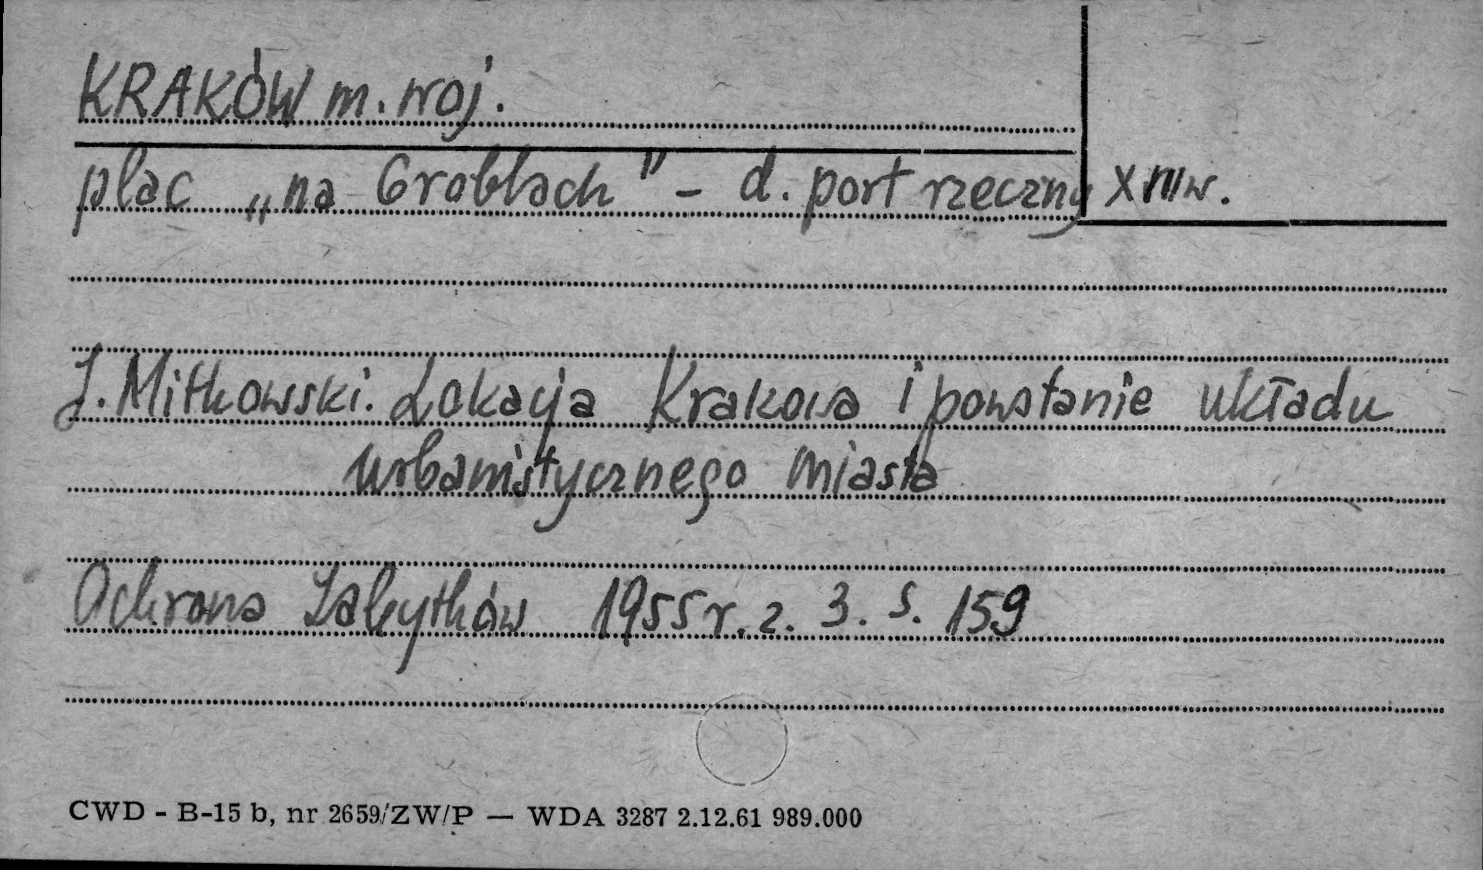 KRAKÓW m. woj.
plac „na Groblach" - d. port rzeczny XIII w.
J. Mitkowski. Lokacja Krakowa i powstanie układu
urbanistycznego miasta
Ochrona Zabytków 1955 r. z. 3. s. 159
CWD - B-15 b, nr 2659/ZW/P — WDA 3287 2.12.61 989.000